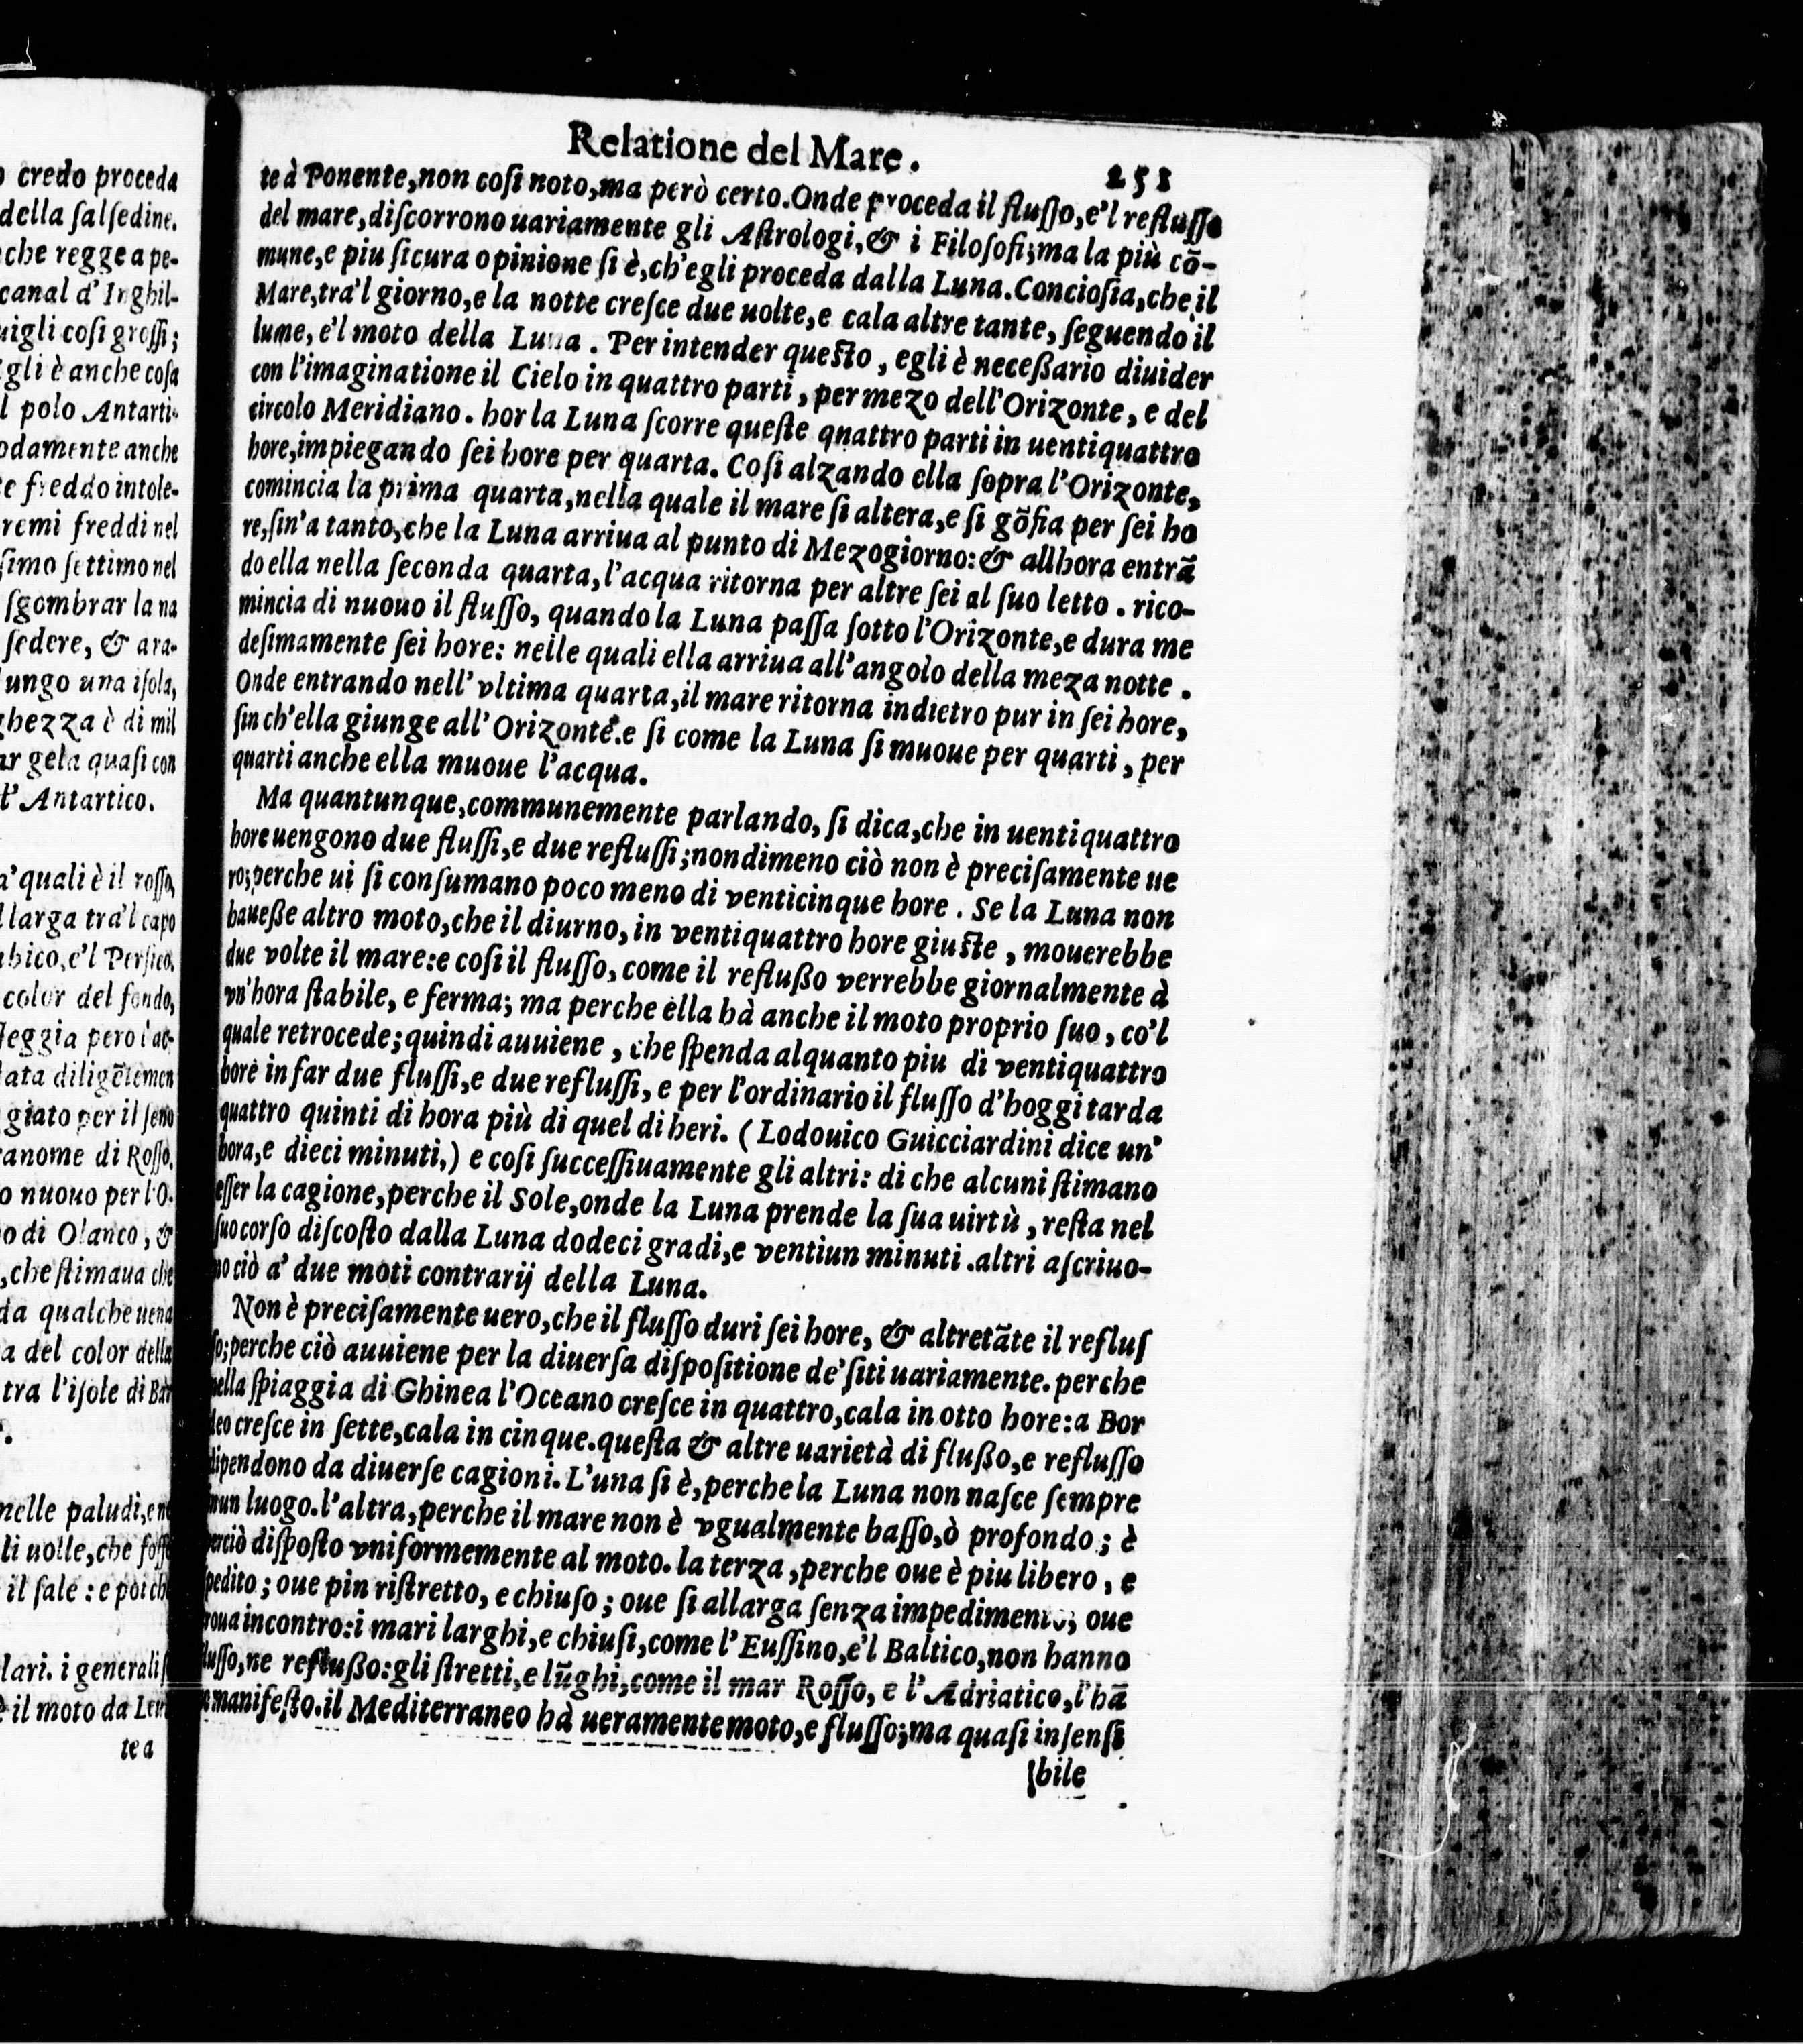 o credo proceda
della ſalſedine.
che regge a pe-
canal d'Inghil-
uigli coſi groſſi;
gli è anche coſa
l polo Antarti-
odamente anche
te freddo intole-
remi freddi nel
ſimo ſettimo nel
ſgombrar la na
ſedere, & ara-
ungo una iſola,
ghezza è di mil
ar gela quaſi con
l'Antartico.
a' quali è il roſſo,
larga tra'l capo
bico, e'l Perſico.
color del fondo,
ſeggia pero l'ac-
lata diligẽtemen
giato per il ſeno
ranome di Roſſo.
o nuouo per l'O-
o di Olanco, &
, che ſtimaua che
da qualche uena
a del color della
tra l'iſole di Bar
nelle paludi, e ne
li uolle, che foſſe
il ſale: e poi ch
lari. i generali ſ
è il moto da Leu
te a
Relatione del Mare.
251
te à Ponente, non coſi noto, ma però certo. Onde proceda il fluſſo, e'l refluſſo
del mare, diſcorrono uariamente gli Aſtrologi, & i Filoſofi; ma la più cõ-
mune, e piu ſicura opinione ſi è, ch'egli proceda dalla Luna. Concioſia, che il
Mare, tra'l giorno, e la notte creſce due uolte, e cala altre tante, ſeguendo il
lume, e'l moto della Luna. Per intender queſto, egli è neceßario diuider
con l'imaginatione il Cielo in quattro parti, per mezo dell'Orizonte, e del
circolo Meridiano. hor la Luna ſcorre queſte qnattro parti in uentiquattro
hore, impiegando ſei hore per quarta. Coſi alzando ella ſopra l'Orizonte,
comincia la prima quarta, nella quale il mare ſi altera, e ſi gõfia per ſei ho
re, ſin'a tanto, che la Luna arriua al punto di Mezogiorno: & allhora entrã
do ella nella ſeconda quarta, l'acqua ritorna per altre ſei al ſuo letto. rico-
mincia di nuouo il fluſſo, quando la Luna paſſa ſotto l'Orizonte, e dura me
deſimamente ſei hore: nelle quali ella arriua all'angolo della meza notte.
Onde entrando nell'vltima quarta, il mare ritorna indietro pur in ſei hore,
ſin ch'ella giunge all'Orizonte. e ſi come la Luna ſi muoue per quarti, per
quarti anche ella muoue l'acqua.
Ma quantunque, communemente parlando, ſi dica, che in uentiquattro
hore uengono due fluſſi, e due refluſſi; nondimeno ciò non è preciſamente ue
ro; perche ui ſi conſumano poco meno di venticinque hore. Se la Luna non
haueße altro moto, che il diurno, in ventiquattro hore giuſte, mouerebbe
due volte il mare: e coſi il fluſſo, come il reflußo verrebbe giornalmente à
vn'hora ſtabile, e ferma; ma perche ella hà anche il moto proprio ſuo, co'l
quale retrocede; quindi auuiene, che ſpenda alquanto piu di ventiquattro
hore in far due fluſſi, e due refluſſi, e per l'ordinario il fluſſo d'hoggi tarda
quattro quinti di hora più di quel di heri. (Lodouico Guicciardini dice un'
hora, e dieci minuti,) e coſi ſucceſſiuamente gli altri: di che alcuni ſtimano
eſſer la cagione, perche il Sole, onde la Luna prende la ſua uirtù, reſta nel
ſuo corſo diſcoſto dalla Luna dodeci gradi, e ventiun minuti. altri aſcriuo-
no ciò a' due moti contrarij della Luna.
Non è preciſamente uero, che il fluſſo duri ſei hore, & altretãte il refluſ
ſo; perche ciò auuiene per la diuerſa diſpoſitione de' ſiti uariamente. perche
nella ſpiaggia di Ghinea l'Oceano creſce in quattro, cala in otto hore: a Bor
deo creſce in ſette, cala in cinque. queſta & altre uarietà di flußo, e refluſſo
dipendono da diuerſe cagioni. L'una ſi è, perche la Luna non naſce ſempre
nun luogo. l'altra, perche il mare non è vgualmente baſſo, ò profondo; è
perciò diſpoſto vniformemente al moto. la terza, perche oue è piu libero, e
pedito; oue pin riſtretto, e chiuſo; oue ſi allarga ſenza impedimento; oue
roua incontro: i mari larghi, e chiuſi, come l'Euſſino, e'l Baltico, non hanno
fluſſo, ne reflußo: gli ſtretti, e lũghi, come il mar Roſſo, e l'Adriatico, l'hã
manifeſto. il Mediterraneo hà ueramente moto, e fluſſo; ma quaſi inſenſi
bile